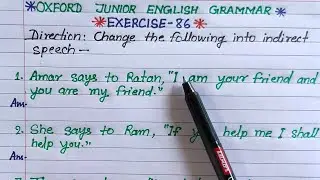 *OXFORD JUNIOR ENGLISH GRAMMAR*
*EXERCISE-86*
Direction: Change the following into indirect
speech—
1. Amar says to Ratan, "I am your friend and
you are my friend."
Ans-
2. She says to Ram, "If you help me I shall
help you."
Ans-